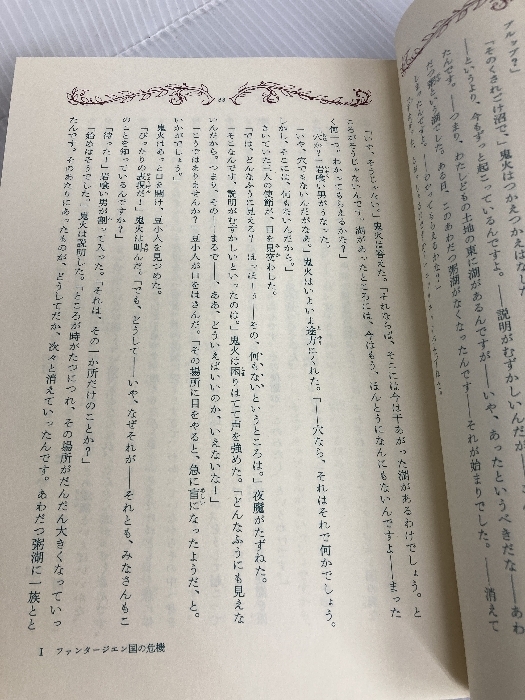 アルップ？」
「そのくされごけ沼で、」鬼火はつかえつかえはな
――というより、今もずっと起こっているんですよ。――説明がむずかしいんだが――
たんです。――つまり、わたしどもの土地の東に湖があるんですが――いや、あったというべきだな――あわ
だつ粥という湖でした。ある日、このあわだつ粥湖がなくなったんです――それが始まりでした。――消えて
しまったんですよ。
「いや、そうじゃない。」鬼火は答えた。「それならば、そこには今は干あがった湖があるわけでしょう。と
ころがそうじゃないんで――湖があったところには、今はもう、ほんとうになんにもないんですよ――まった
く何も。わかってもらえるかなあ？」
「穴かね？」岩喰い男がうなった。
「いや、穴でもないんだがなあ。」鬼火はいよいよ途方にくれた。「――穴なら、それはそれで何かでしょう。
しかし、そこには、何もないんだから。」
きいていた三人の使節が、目を見交わした。
「では、どんなふうに見える？ ほっほーぅ――その、何もないというところは。」夜魔がたずねた。
「そこなんです、説明がむずかしいといったのは。」鬼火は困りはてて声を強めた。「どんなふうにも見えな
いんだから。つまり、その――まるで――、ああ、どういえばいいのか、いえないなー」
「こうではありませんか？」豆小人が口をはさんだ。「その場所に目をやると、急に盲になったようだ、と。
いかがでしょう。」
鬼火はぽっと口を開け、豆小人を見つめた。
「ぴったりの表現だ！」鬼火は叫んだ。「でも、どうして――いや、なぜそれが――それとも、みなさんもこ
のことを知っているんですか？」
「待った！」岩喰い男が割って入った。「それは、その一か所だけのことか？」
「始めはそうでした。」鬼火は説明した。「ところが時がたつにつれ、その場所がだんだん大きくなっていっ
たんです。そのあたりにあったものが、どうしてだか、次々と消えていったんです。あわだつ粥湖に一族とと
I ファンタージエン国の危機